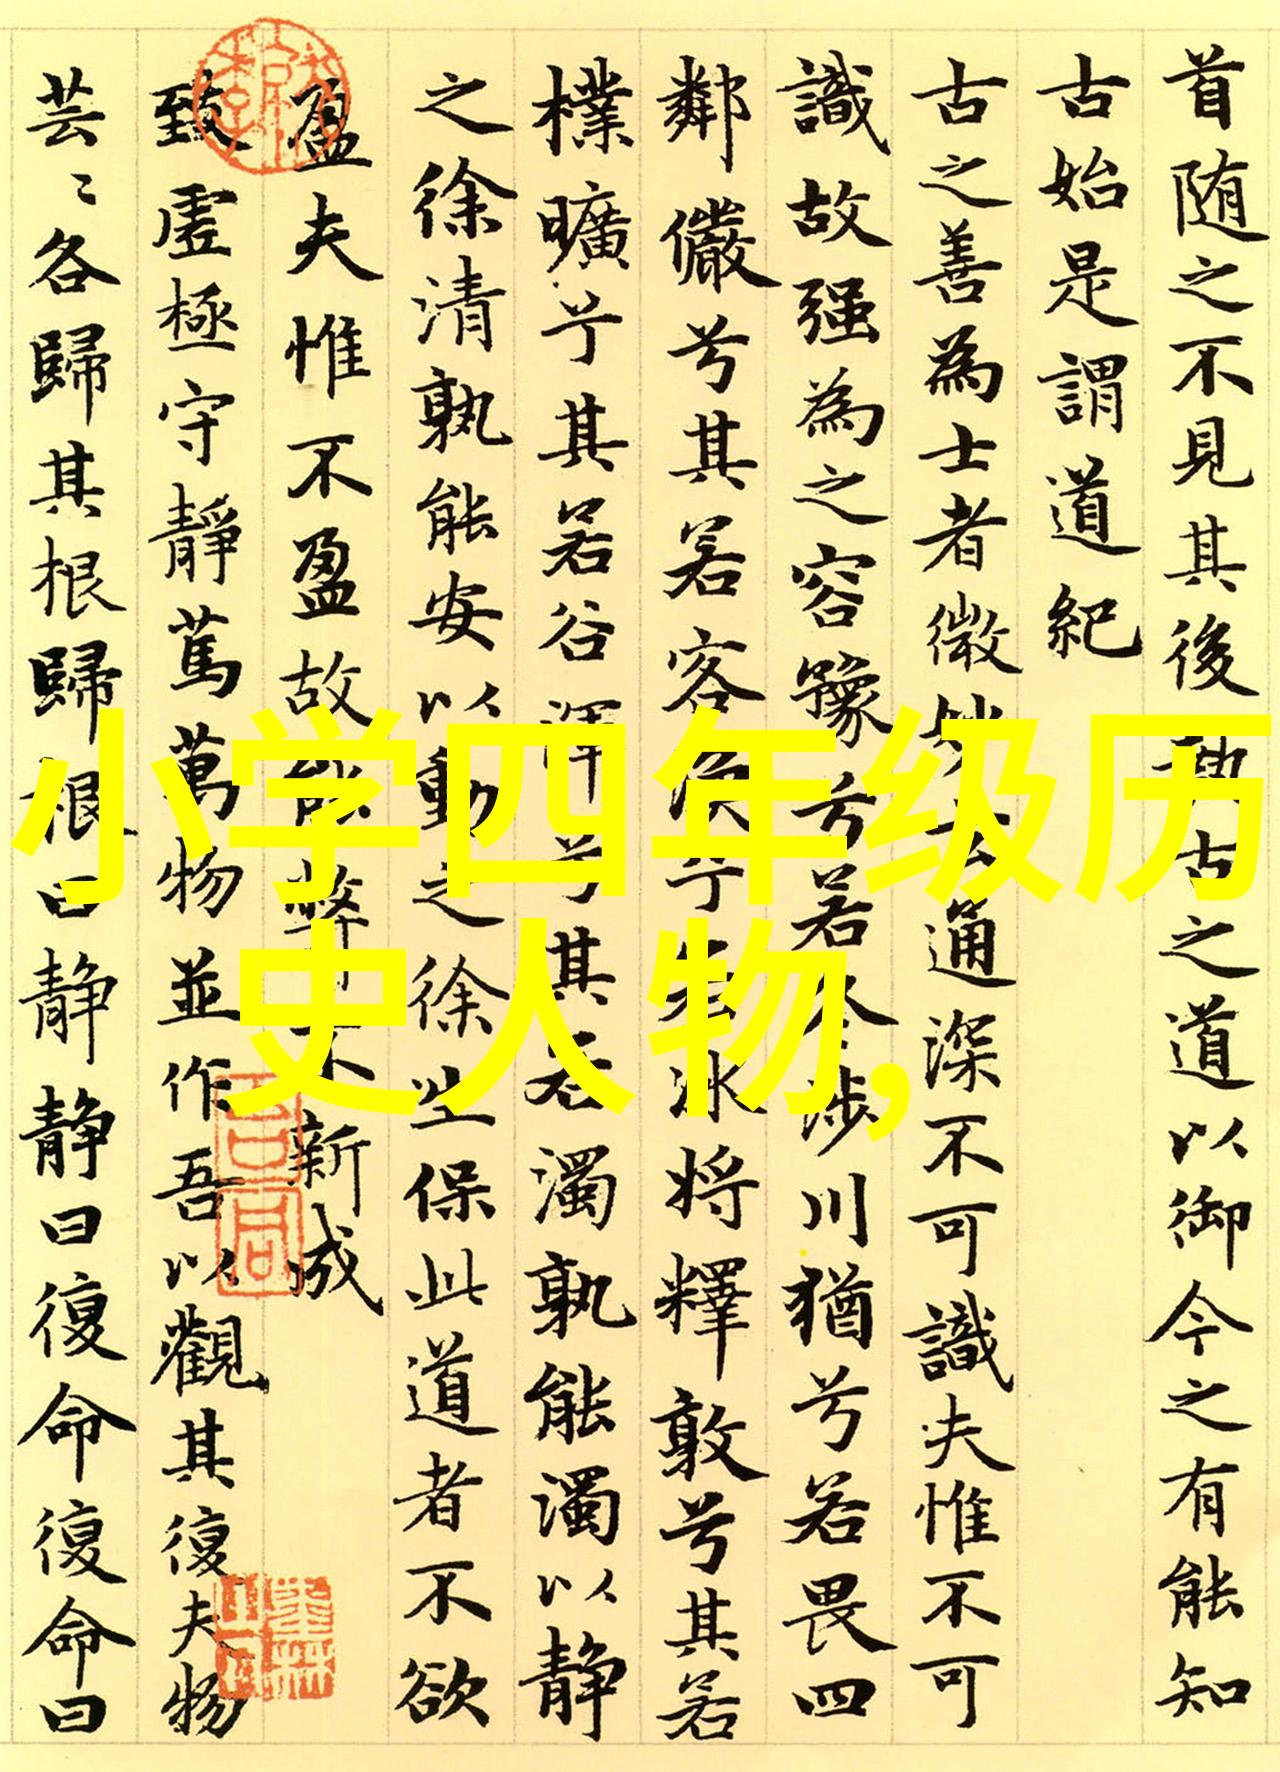 首随之不見其後執古之道以御今之有能知
古始是謂道紀
古之善為士者微妙玄通深不可識夫惟不可
識故强為之容豫兮若冬涉川猶兮若畏四
鄰儼兮其若客渙兮若冰将釋敦兮其若
樸曠兮其若谷渾兮其若濁孰能濁以静
之徐清孰能安以動之徐生保此道者不欲
盈夫惟不盈故能弊不新成
致虛極守靜篤萬物並作吾以觀其復夫物
芸〻各歸其根歸根曰静静曰復命復命曰
小学四年级历
史人物,